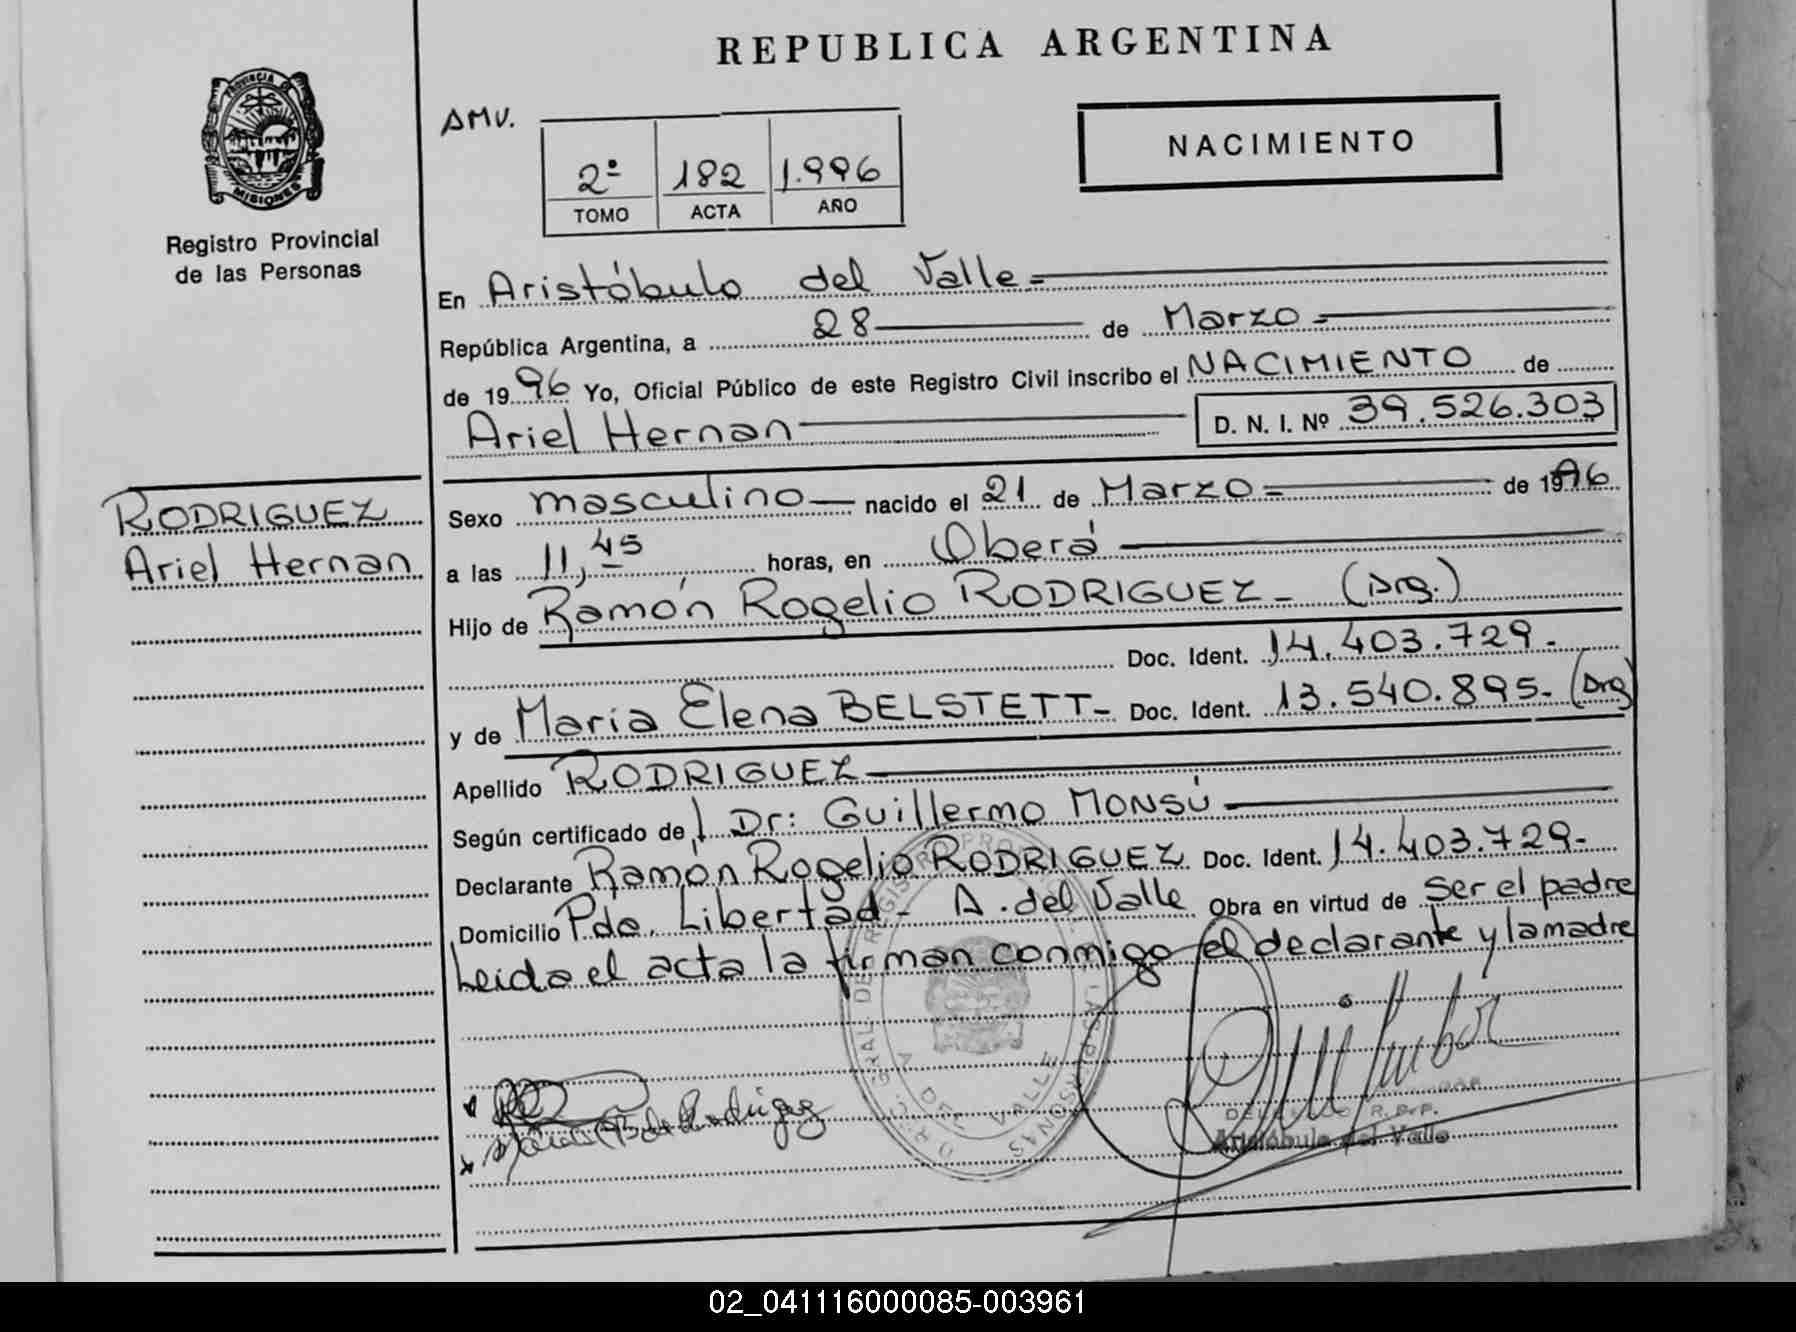 REPUBLICA ARGENTINA
PROVINCIA DE
MISIONES
Registro Provincial
de las Personas
AMV.
2º 182 1.996
TOMO ACTA AÑO
NACIMIENTO
En Aristóbulo del Valle=
República Argentina, a 28 de Marzo=
de 1996 Yo, Oficial Público de este Registro Civil inscribo el NACIMIENTO de
Ariel Hernan D. N. I. Nº 39.526.303
RODRIGUEZ
Ariel Hernan
Sexo masculino nacido el 21 de Marzo= de 1996
a las 11,45 horas, en Oberá
Hijo de Ramón Rogelio RODRIGUEZ- (Arg.)
Doc. Ident. 14.403.729.-
y de María Elena BELSTETT- Doc. Ident. 13.540.895.- (Arg)
Apellido RODRIGUEZ
Según certificado de, Dr: Guillermo MONSÚ
Declarante Ramón Rogelio RODRIGUEZ Doc. Ident. 14.403.729.-
Domicilio Pdo. Libertad- A. del Valle Obra en virtud de ser el padre
Leida el acta la firman conmigo el declarante y la madre
R. P. P.
Aristóbulo del Valle
02_041116000085-003961